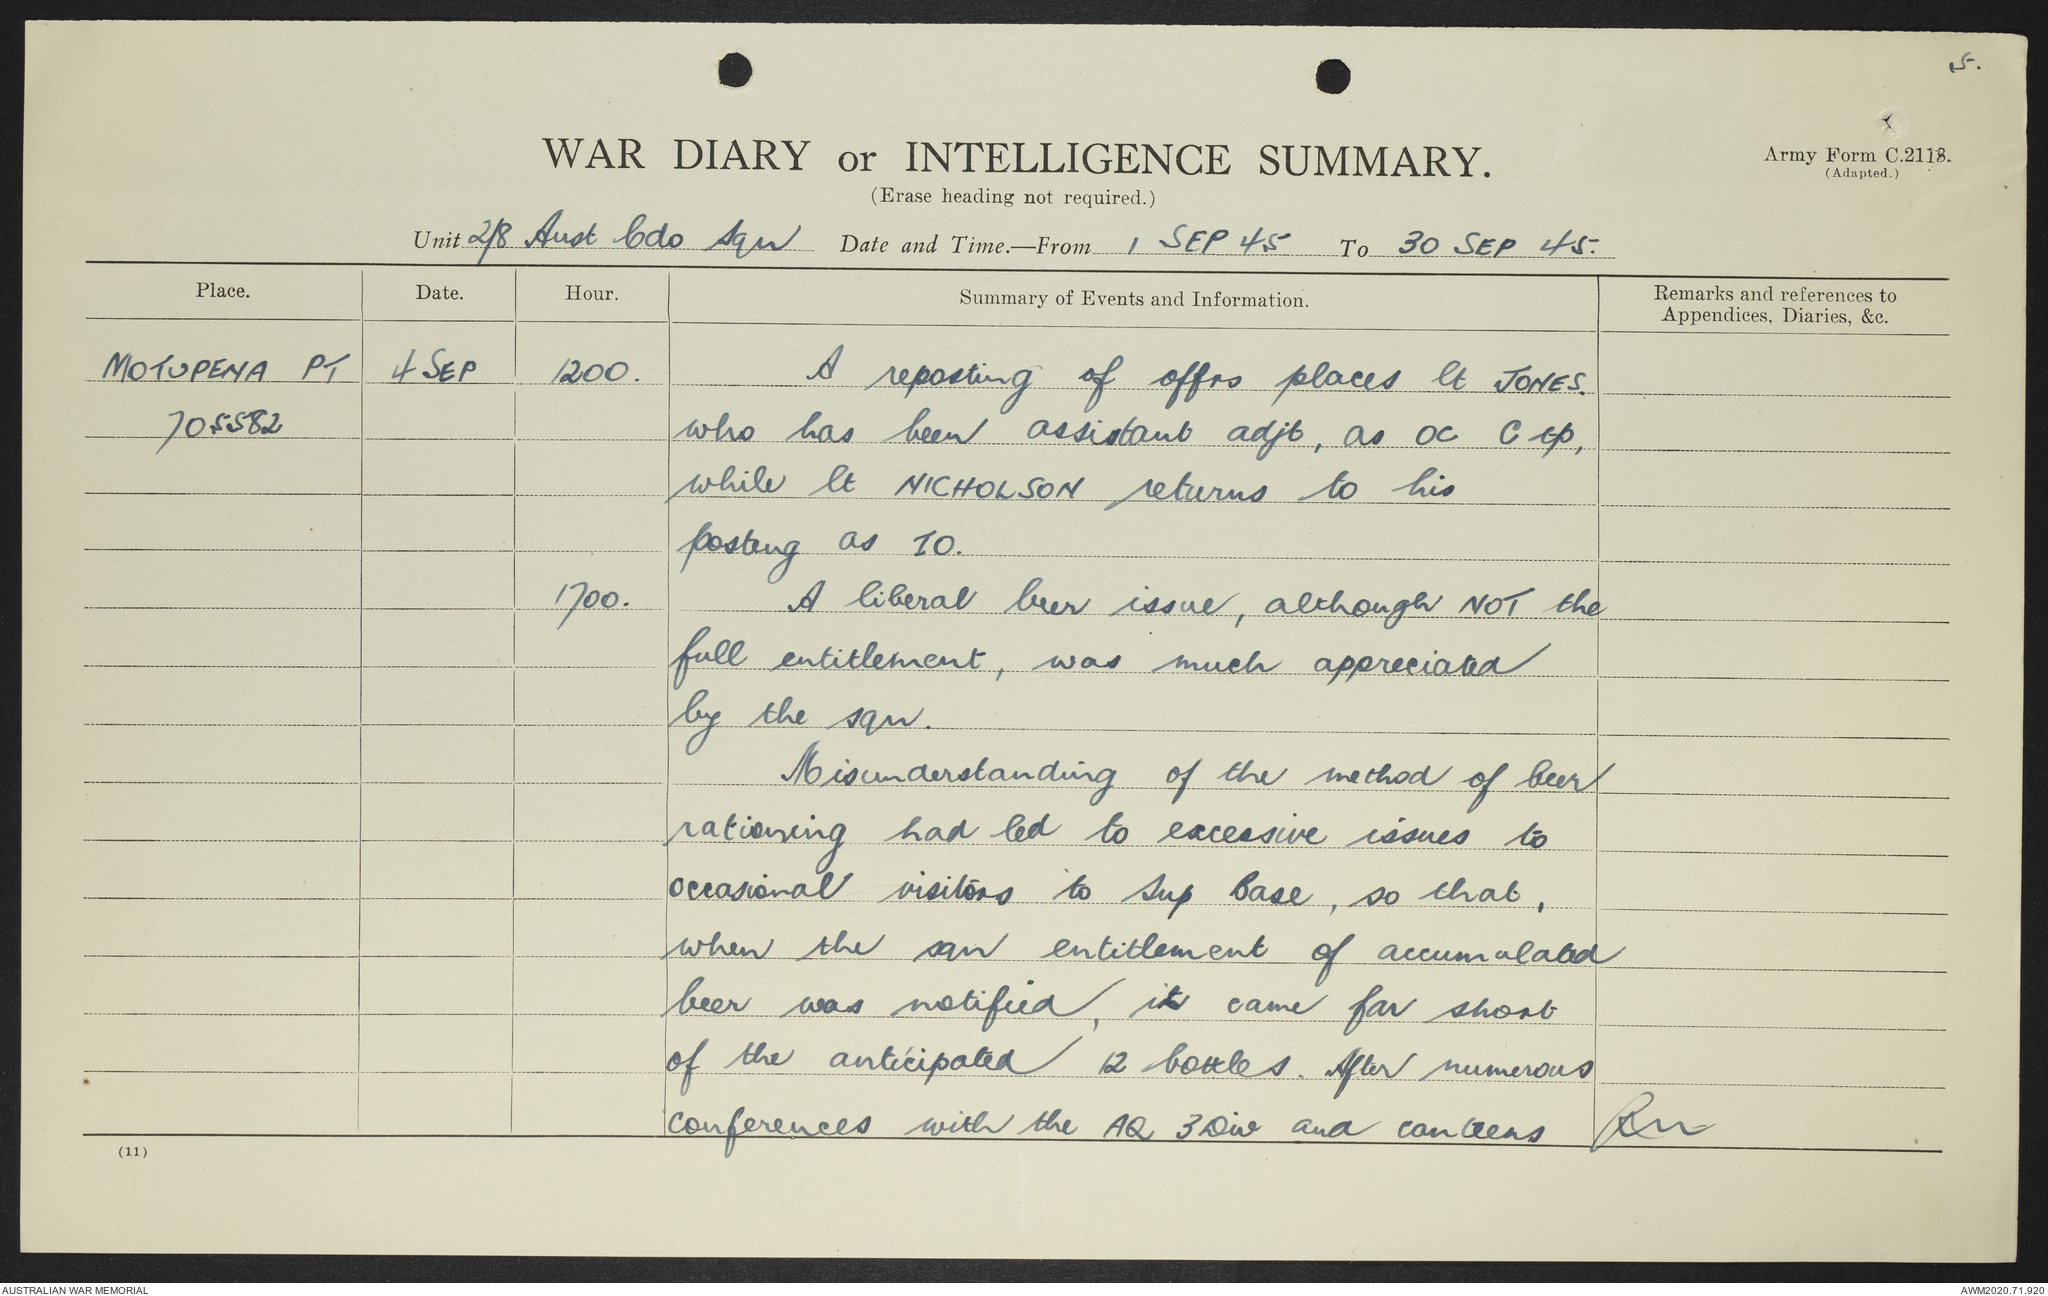 5.
WAR DIARY or INTELLIGENCE SUMMARY.
Army Form C.2118.
(Adapted.)
(Erase heading not required.)
Unit 2/8 Aust Cdo Sqn Date and Time.—From 1 SEP 45 To 30 SEP 45.
Place. Date. Hour. Summary of Events and Information. Remarks and references to
Appendices, Diaries, &c.
MOTUPENA PT 4 SEP 1200. A reposting of offrs places Lt JONES.
705582 who has been assistant adjt, as OC C tp,
while Lt NICHOLSON returns to his
posting as IO.
1700. A liberal beer issue, although NOT the
full entitlement, was much appreciated
by the sqn.
Misunderstanding of the method of beer
rationing had led to excessive issues to
occasional visitors to Sup Base, so that,
when the sqn entitlement of accumulated
beer was notified, it came far short
of the anticipated 12 bottles. After numerous
conferences with the AQ 3 Div and canteens
(11)
AUSTRALIAN WAR MEMORIAL
AWM2020.71.920